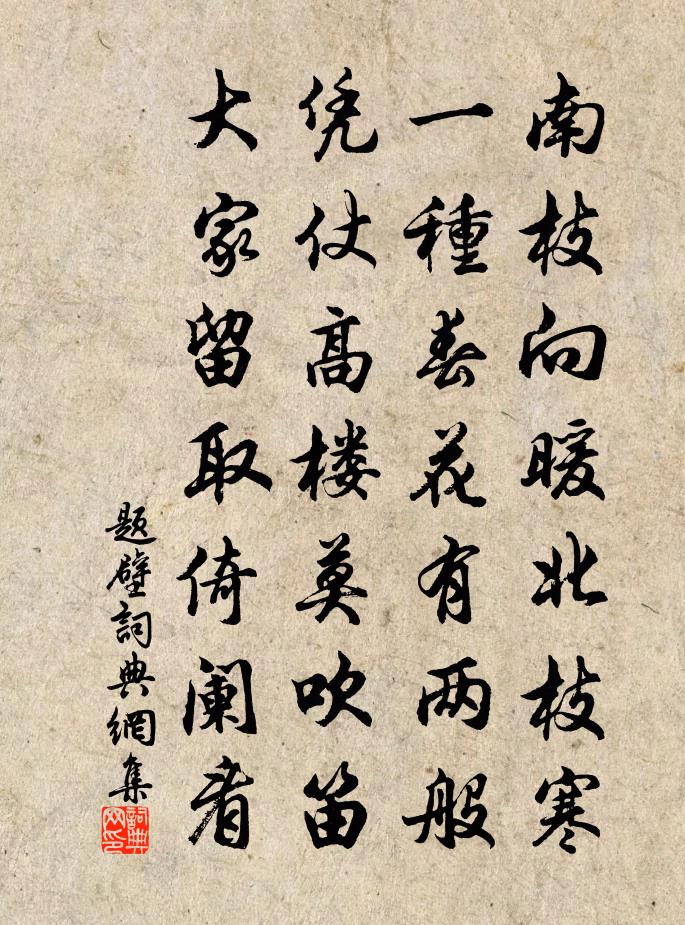 南枝向暖北枝寒
一種春花有两般
凭仗高楼莫吹笛
大家留取倚阑看
题壁詞典網集
詞典网印